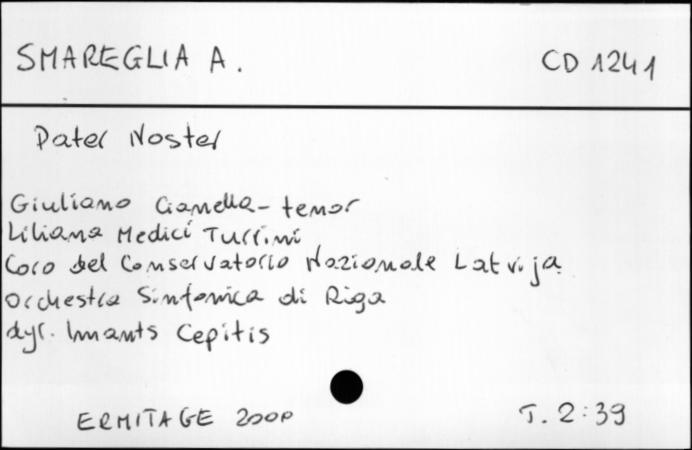 SMAREGLIA A. CD 1241
Pater Noster
Giuliano Cianella - tenor
Liliana Medici Turrini
Coro del Conservatorio Nazionale Latvija
Orchestra Sinfonica di Riga
dyr. Imants Cepitis
ERMITAGE 2000 T. 2:39